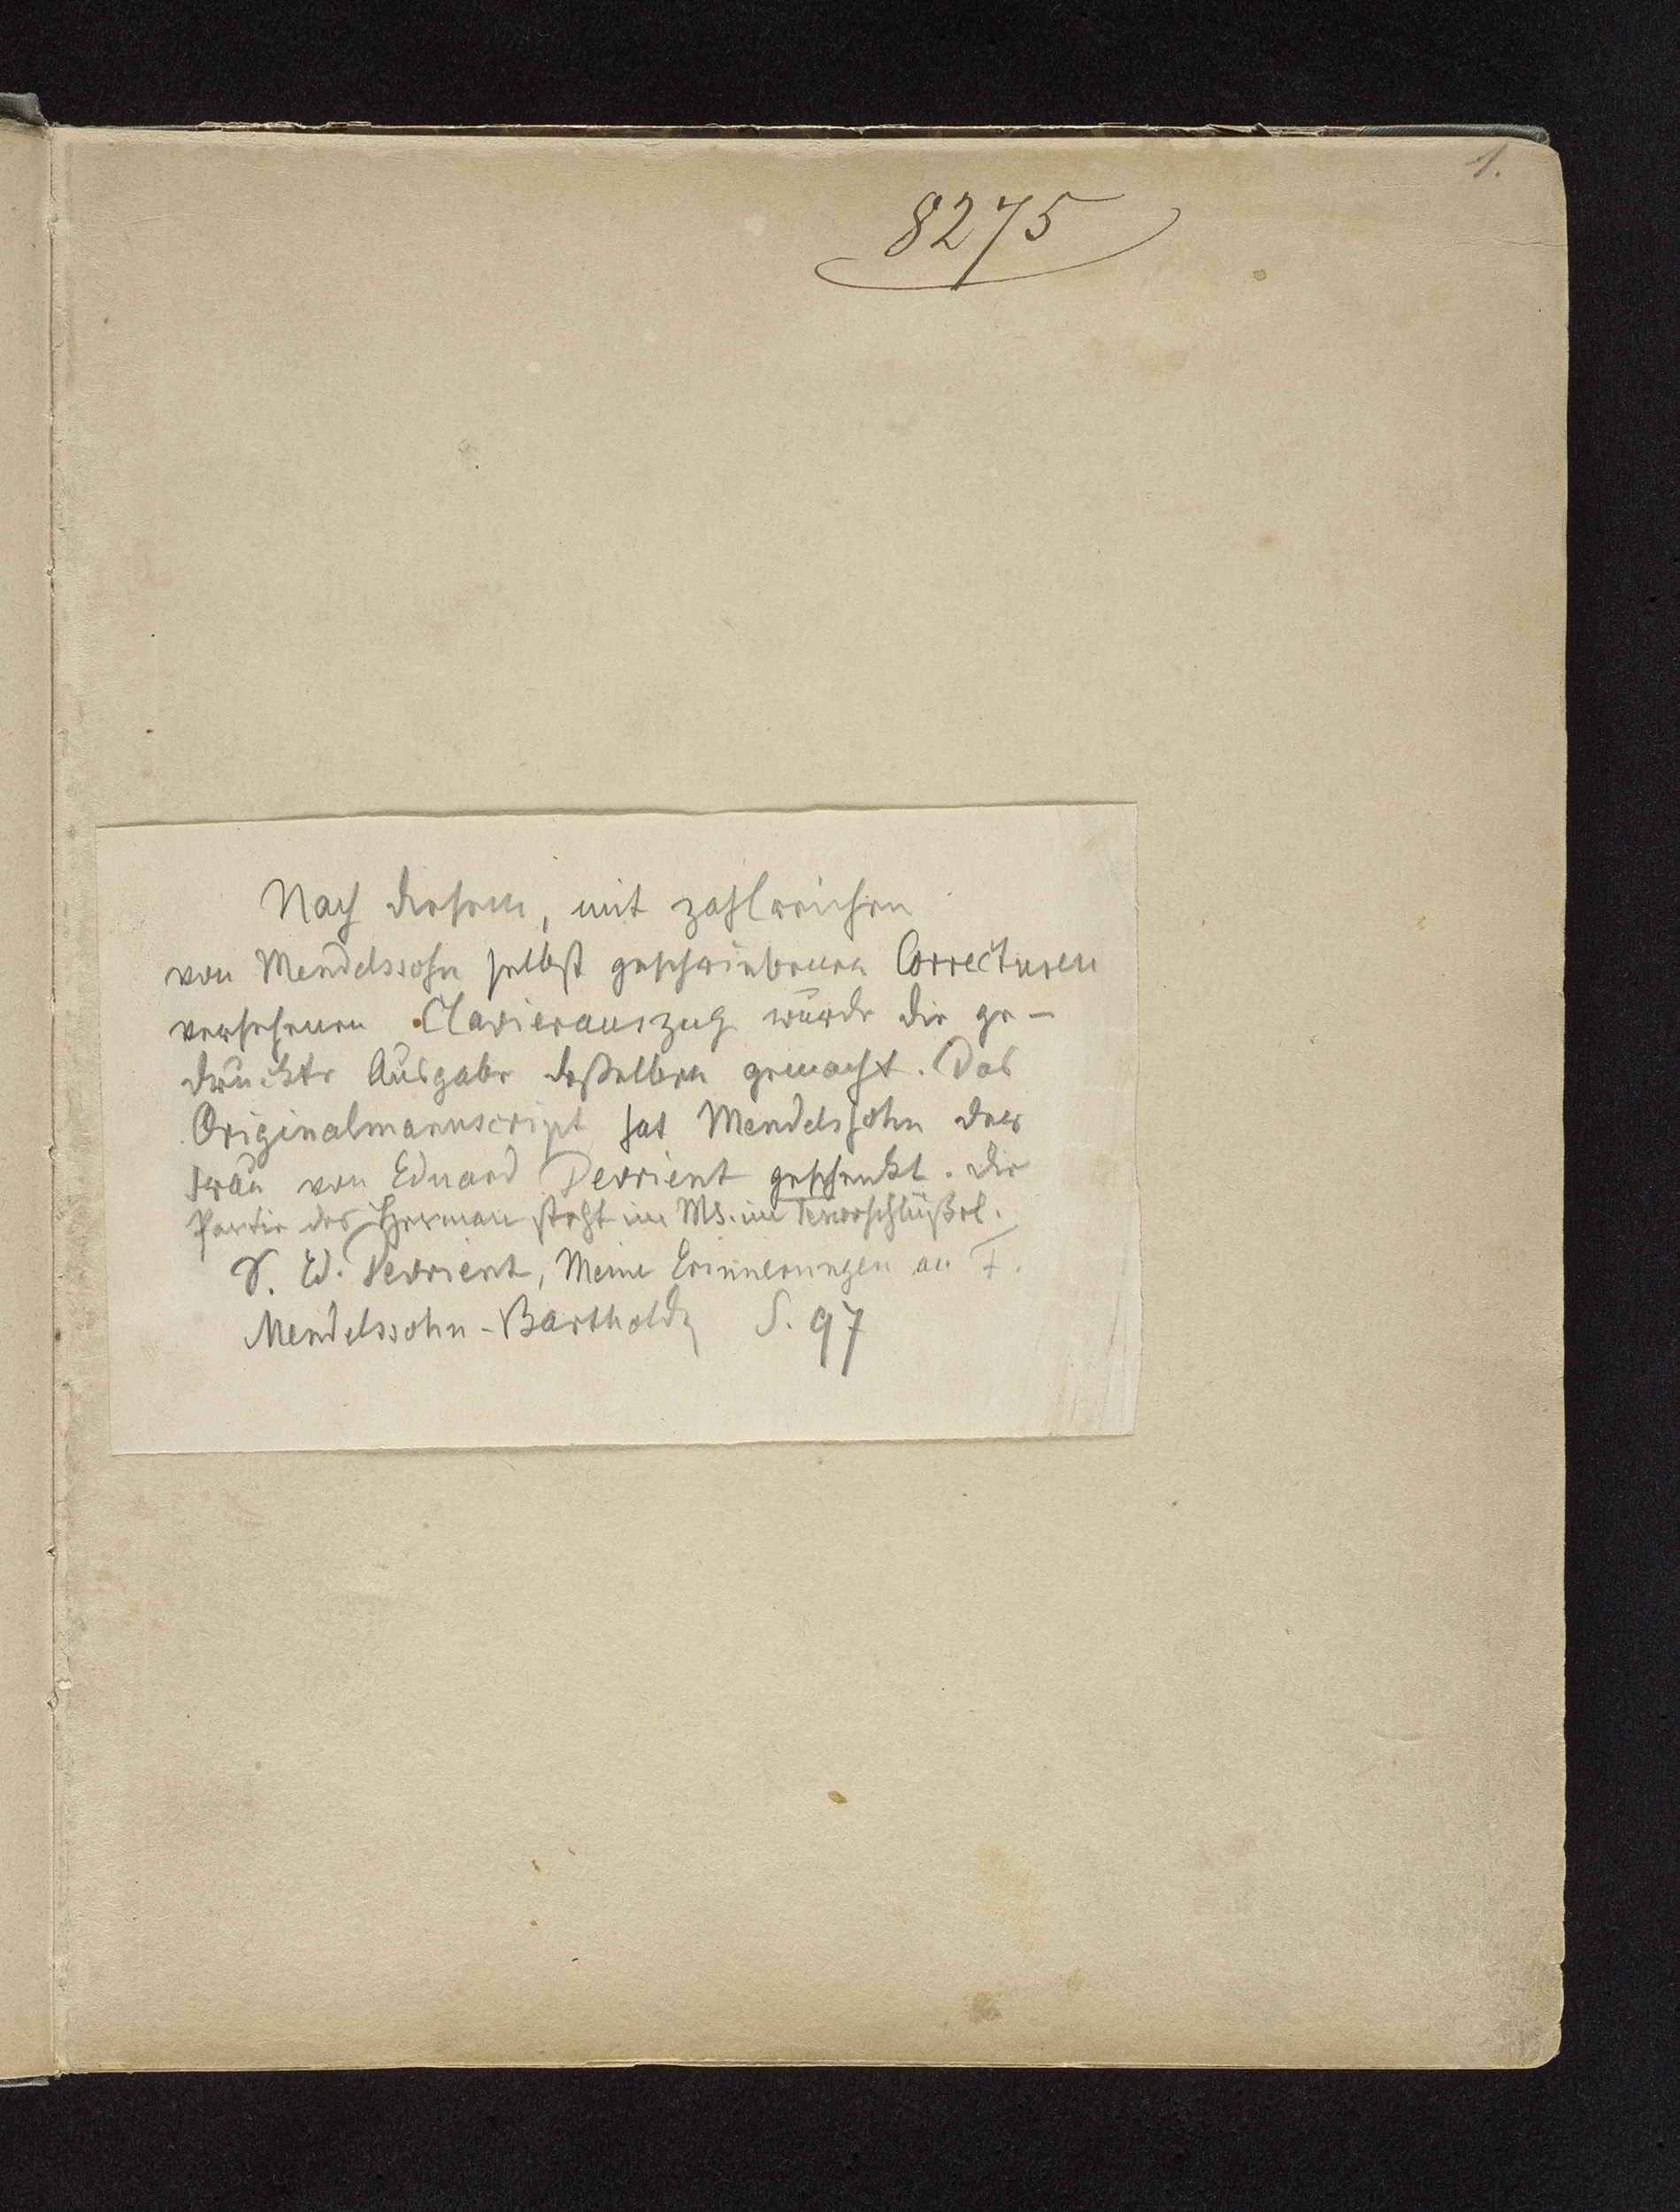 1.
8275
Nach diesem, mit zahlreichen
von Mendelssohn selbst geschriebenen Correcturen
versehenen Clavierauszug wurde die ge-
druckte Ausgabe desselben gemacht. Das
Originalmanuscript hat Mendelssohn der
Frau von Eduard Devrient geschenkt. Die
Partie des Herman steht im Ms. im Tenorschlüßel.
V. Ed. Devrient, Meine Erinnerungen an F.
Mendelssohn-Bartholdy S. 97